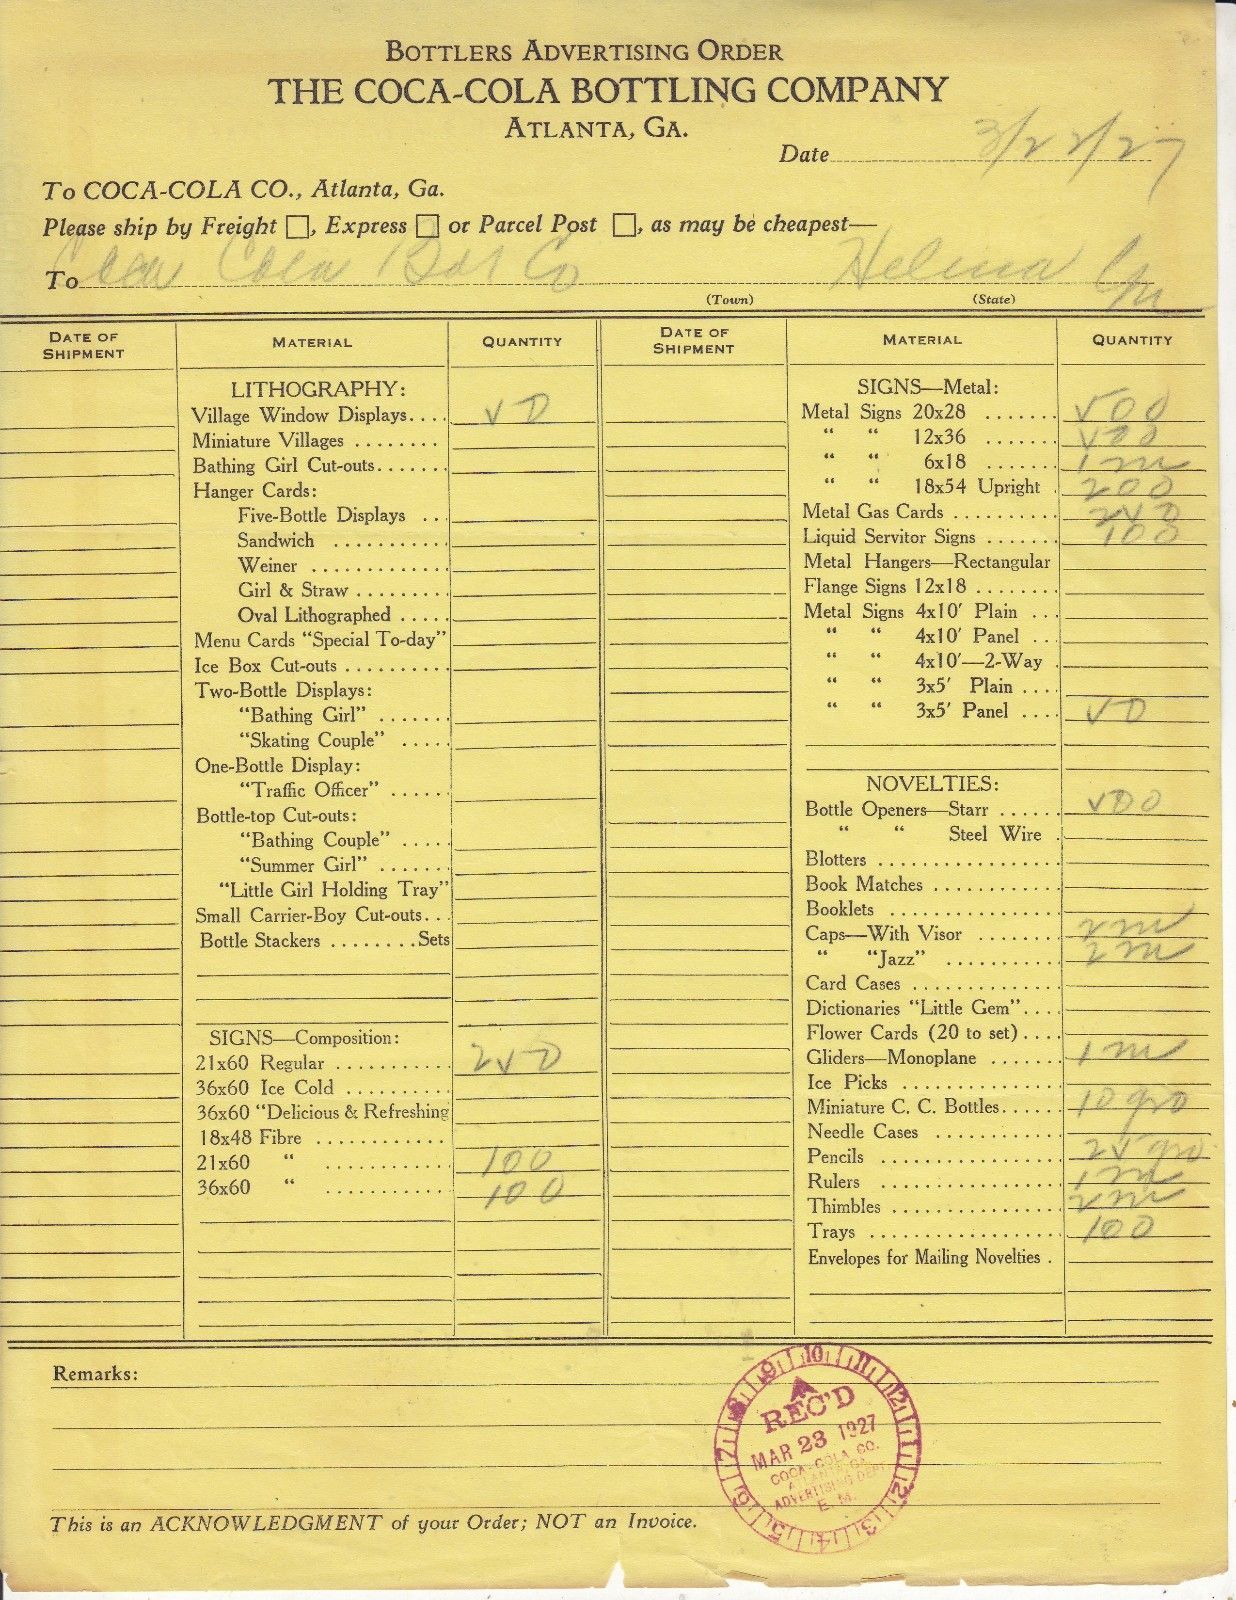 BOTTLERS ADVERTISING ORDER
THE COCA-COLA BOTTLING COMPANY
ATLANTA, GA.
Date 3/22/27
To COCA-COLA CO., Atlanta, Ga.
Please ship by Freight ☐, Express ☐ or Parcel Post ☐, as may be cheapest—
To Coca Cola Bot Co Helena
(Town) (State)
DATE OF SHIPMENT MATERIAL QUANTITY
LITHOGRAPHY:
Village Window Displays.... 50
Miniature Villages ........
Bathing Girl Cut-outs.......
Hanger Cards:
Five-Bottle Displays ...
Sandwich ..........
Weiner .............
Girl & Straw .........
Oval Lithographed .....
Menu Cards "Special To-day"
Ice Box Cut-outs ..........
Two-Bottle Displays:
"Bathing Girl" .......
"Skating Couple" .....
One-Bottle Display:
"Traffic Officer" ......
Bottle-top Cut-outs:
"Bathing Couple" .....
"Summer Girl" .......
"Little Girl Holding Tray"
Small Carrier-Boy Cut-outs...
Bottle Stackers ........Sets
SIGNS—Composition:
21x60 Regular ........... 250
36x60 Ice Cold ..........
36x60 "Delicious & Refreshing
18x48 Fibre ............
21x60 " ............ 100
36x60 " ............ 100
DATE OF SHIPMENT MATERIAL QUANTITY
SIGNS—Metal:
Metal Signs 20x28 ....... 500
" " 12x36 ....... 500
" " 6x18 ....... 1 m
" " 18x54 Upright . 200
Metal Gas Cards .......... 250
Liquid Servitor Signs ....... 100
Metal Hangers—Rectangular
Flange Signs 12x18 ........
Metal Signs 4x10' Plain ...
" " 4x10' Panel ...
" " 4x10'—2-Way .
" " 3x5' Plain ....
" " 3x5' Panel .... 50
NOVELTIES:
Bottle Openers—Starr ...... 500
" " Steel Wire .
Blotters ..................
Book Matches .............
Booklets .................
Caps—With Visor ........ 2m
" "Jazz" ........... 2m
Card Cases ..............
Dictionaries "Little Gem"....
Flower Cards (20 to set)....
Gliders—Monoplane ....... 1 m
Ice Picks ................
Miniature C. C. Bottles...... 10 gro
Needle Cases ............
Pencils .................. 25 gro
Rulers .................. 1 m
Thimbles ................. 2m
Trays ................... 100
Envelopes for Mailing Novelties .
Remarks:
9 10 11 12 2 3 4 5 6 7 8
REC'D
MAR 23 1927
COCA-COLA CO.
ATLANTA, GA.
ADVERTISING DEPT.
E. M.
This is an ACKNOWLEDGMENT of your Order; NOT an Invoice.